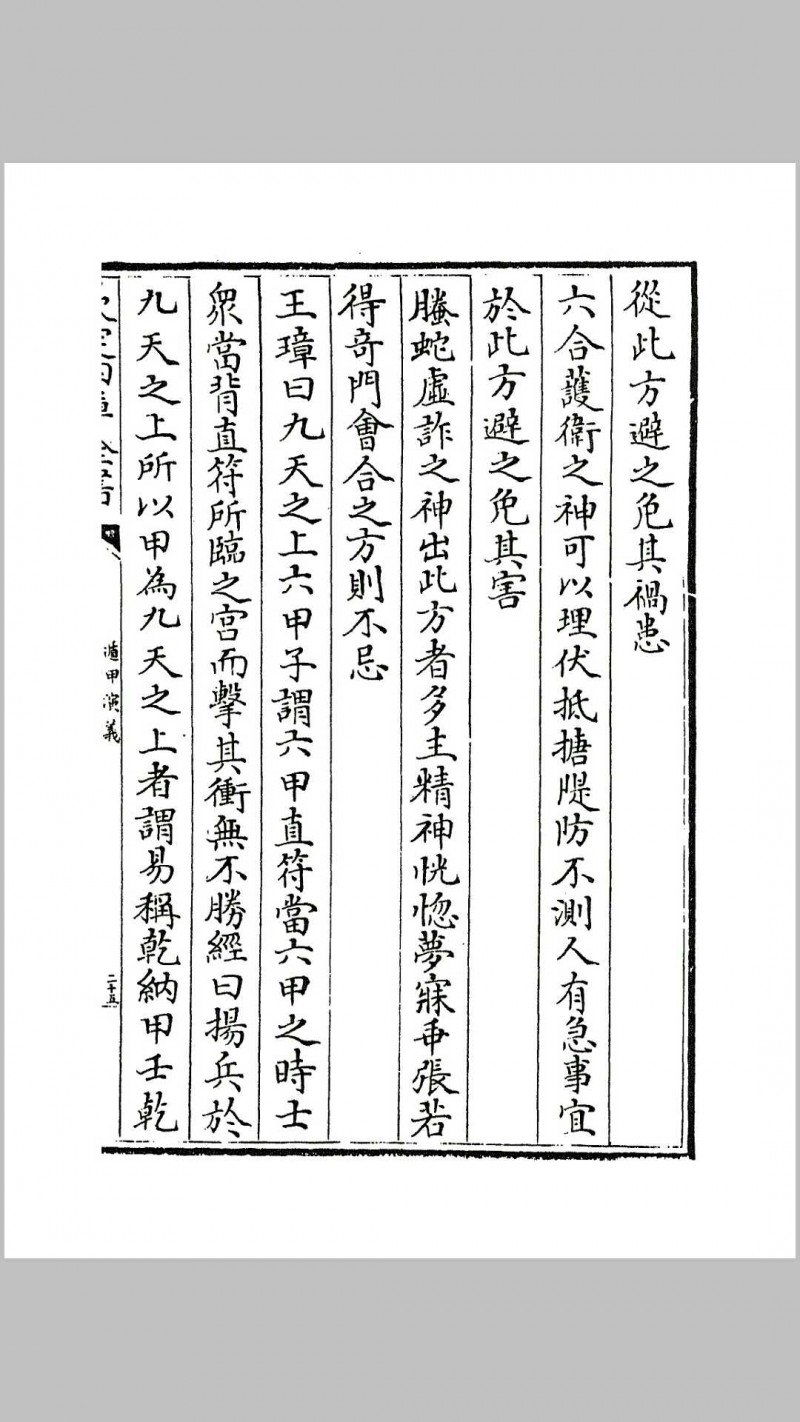 從此方避之免其禍患
六合護衛之神可以理伏抵搪隄防不測人有急事宜
於此方避之免其害
螣蛇虛詐之神出此方者多主精神恍惚夢寐乖張若
得竒門會合之方則不忌
王璋曰九天之上六甲子謂六甲直符當六甲之時士
衆當背直符所臨之宫而擊其衝無不勝經曰揚兵於
九天之上所以甲為九天之上者謂易稱乾納甲壬乾
遁甲演義
二十五